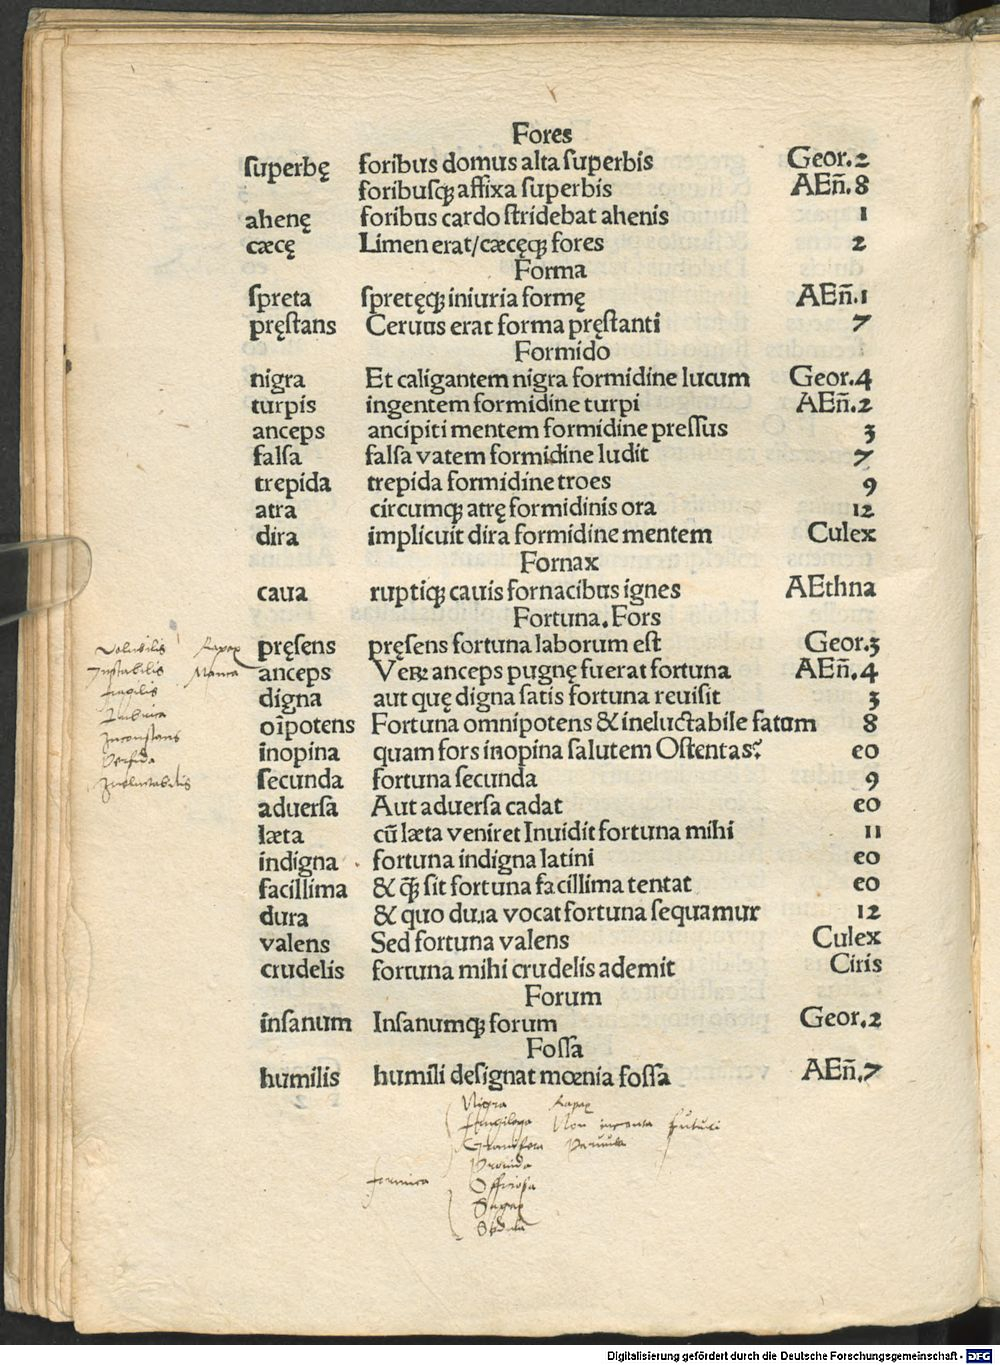 Fores
superbę foribus domus alta superbis Geor.2
foribusq; affixa superbis AEn̄.8
ahenę foribus cardo stridebat ahenis 1
cæcę Limen erat/cæcęq; fores 2
Forma
spreta spretęq; iniuria formę AEn̄.1
pręstans Ceruus erat forma pręstanti 7
Formido
nigra Et caligantem nigra formidine lucum Geor.4
turpis ingentem formidine turpi AEn̄.2
anceps ancipiti mentem formidine pressus 3
falsa falsa vatem formidine ludit 7
trepida trepida formidine troes 9
atra circumq; atrę formidinis ora 12
dira implicuit dira formidine mentem Culex
Fornax
caua ruptiq; cauis fornacibus ignes AEthna
Fortuna. Fors
pręsens pręsens fortuna laborum est Geor.3
anceps Veꝝ anceps pugnę fuerat fortuna AEn̄.4
digna aut quę digna satis fortuna reuisit 3
oīpotens Fortuna omnipotens & ineluctabile fatum 8
inopina quam fors inopina salutem Ostentas? eo
secunda fortuna secunda 9
aduersa Aut aduersa cadat eo
læta cū læta veniret Inuidit fortuna mihi 11
indigna fortuna indigna latini eo
facillima & q̄; sit fortuna facillima tentat eo
dura & quo dura vocat fortuna sequamur 12
valens Sed fortuna valens Culex
crudelis fortuna mihi crudelis ademit Ciris
Forum
insanum Insanumq; forum Geor.2
Fossa
humilis humili designat mœnia fossa AEn̄.7
Volubilis Rapax
Instabilis Manca
fragilis
Inconstans
Perfida
Ineluctabilis
Nigra Rapax
frugilega Non incauta futuri
Granifera Paruula
Prouida
formica Officiosa
Sagax
Sedula
Digitalisierung gefördert durch die Deutsche Forschungsgemeinschaft - DFG